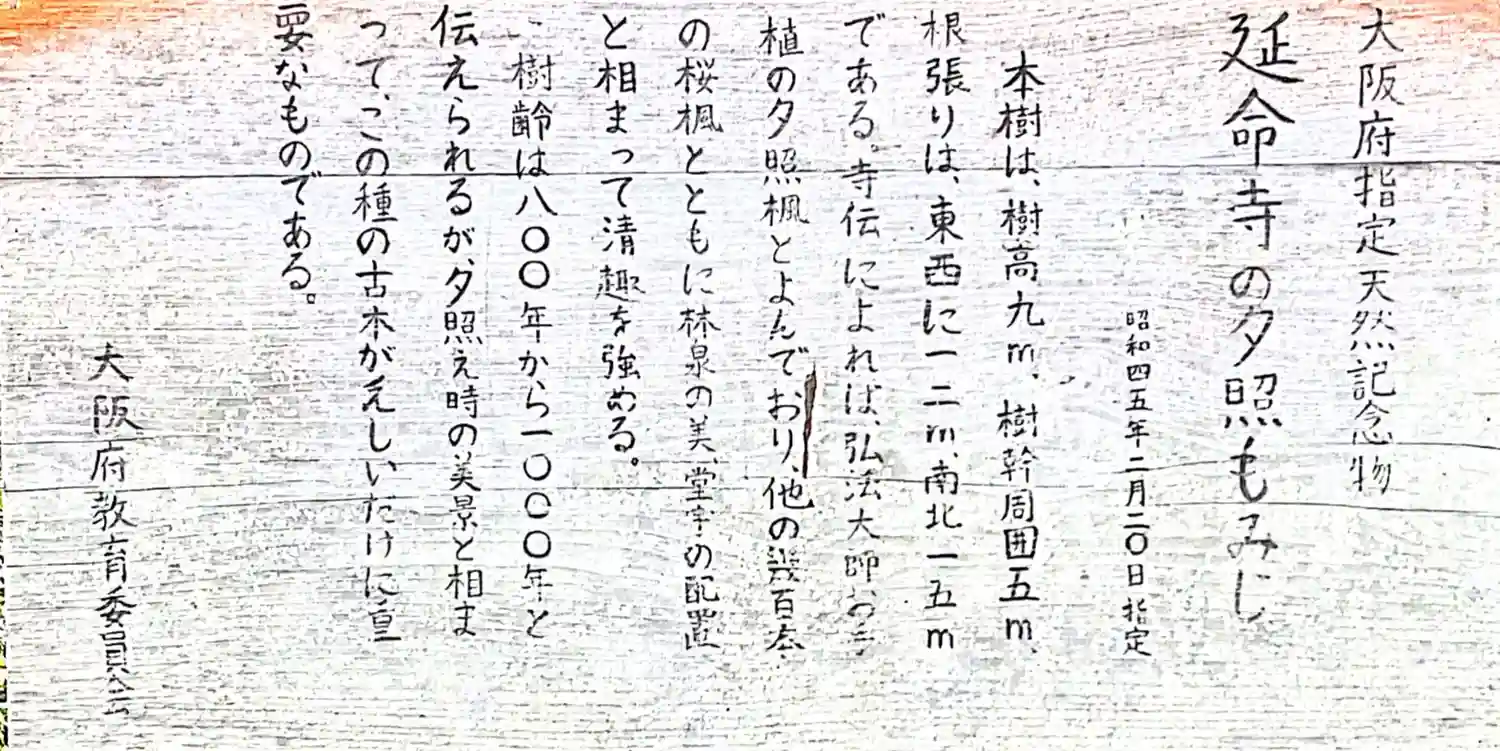 大阪府指定天然記念物
延命寺の夕照もみじ
昭和四五年二月二〇日指定
本樹は、樹高九m、樹幹周囲五m、
根張りは、東西に一二m、南北一五m
である。寺伝によれば、弘法大師、お手
植の夕照楓とよんでおり、他の幾百本
の桜楓とともに林泉の美、堂宇の配置
と相まって清趣を強める。
樹齢は八〇〇年から一〇〇〇年と
伝えられるが、夕照え時の美景と相ま
って、この種の古木がえしいだけに重
要なものである。
大阪府教育委員会